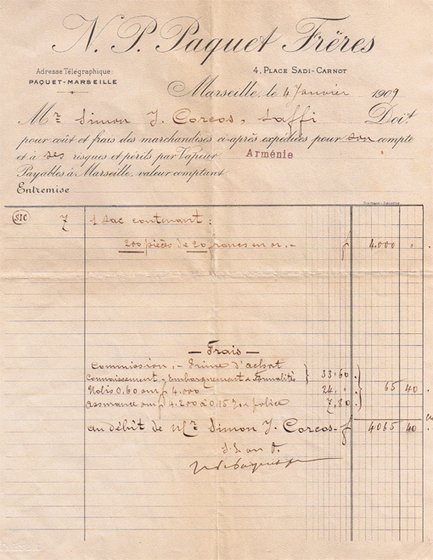 N. P. Paquet Frères
Adresse Télégraphique:
PAQUET-MARSEILLE
4, PLACE SADI-CARNOT
Marseille, le 4 Janvier 1909
Mr Simon J. Corcos, Saffi Doit
pour coût et frais des marchandises ci-après expédiées pour son compte
et à ses risques et périls par Vapeur Arménie
Payables à Marseille, valeur comptant
Entremise
SJC 7 1 Sac contenant:
200 pièces de 20 francs en or. - f 4.000 "
— Frais —
Commission, - Prime d'achat 33.60
Connaissement, Embarquement & Formalité
Nolis 0,60 sur f 4.000 24. " 65 40
Assurance sur f 4.200 à 0.15 % & police 7.80
au débit de Mr Simon J. Corcos f 4065 40
S. E. ou O.